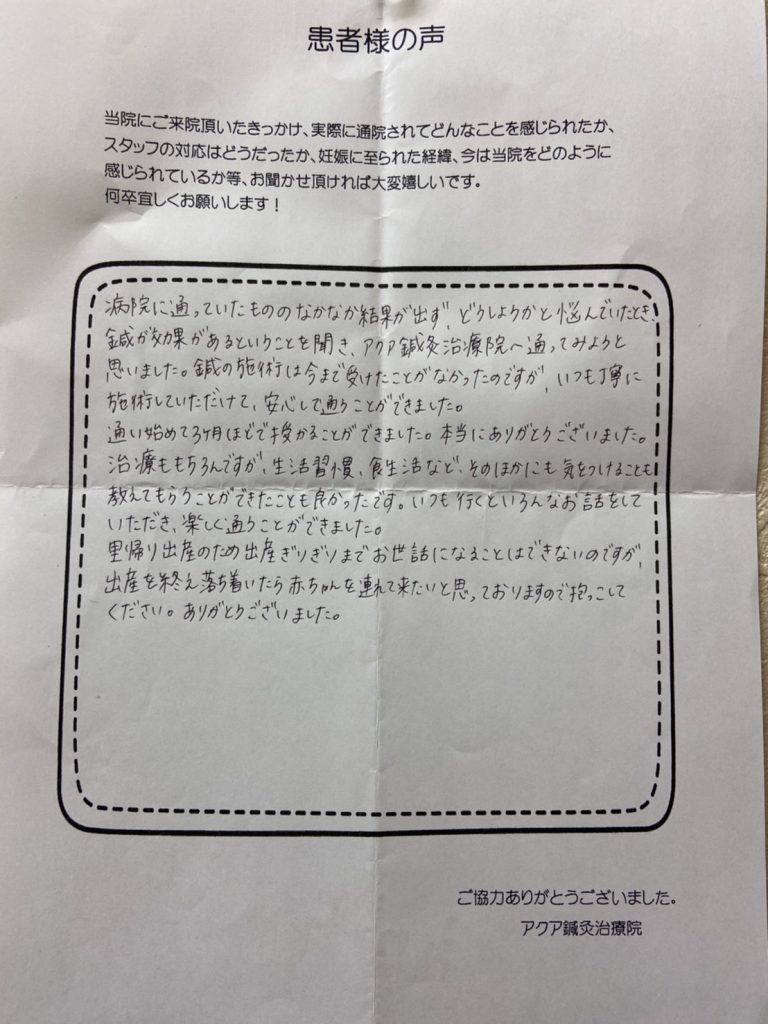 患者様の声
当院にご来院頂いたきっかけ、実際に通院されてどんなことを感じられたか、
スタッフの対応はどうだったか、妊娠に至られた経緯、今は当院をどのように
感じられているか等、お聞かせ頂ければ大変嬉しいです。
何卒宜しくお願いします！
病院に通っていたもののなかなか結果が出ず、どうしようかと悩んでいたとき、
鍼が効果があるということを聞き、アクア鍼灸治療院へ通ってみようと
思いました。鍼の施術は今まで受けたことがなかったのですが、いつも丁寧に
施術していただけて、安心して通うことができました。
通い始めて3ヶ月ほどで授かることができました。本当にありがとうございました。
治療ももちろんですが、生活習慣、食生活など、そのほかにも気をつけることも
教えてもらうことができたことも良かったです。いつも行くといろんなお話をして
いただき、楽しく通うことができました。
里帰り出産のため出産ぎりぎりまでお世話になることはできないのですが、
出産を終え落ち着いたら赤ちゃんを連れて来たいと思っておりますので抱っこして
ください。ありがとうございました。
ご協力ありがとうございました。
アクア鍼灸治療院